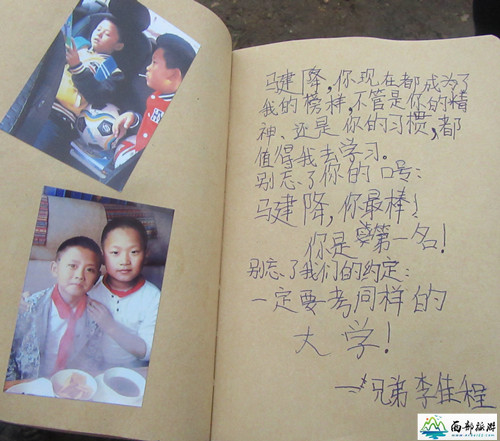 马建降,你现在都成为了
我的榜样,不管是你的精
神、还是你的习惯,都
值得我去学习。
别忘了你的口号:
马建降,你最棒!
你是第一名!
别忘了我们的约定:
一定要考同样的
大学!
兄弟李佳程
西部旅游